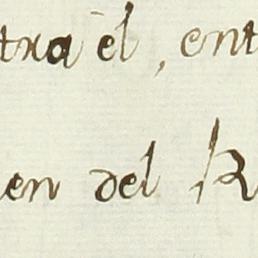 tra èl, ent
en del R